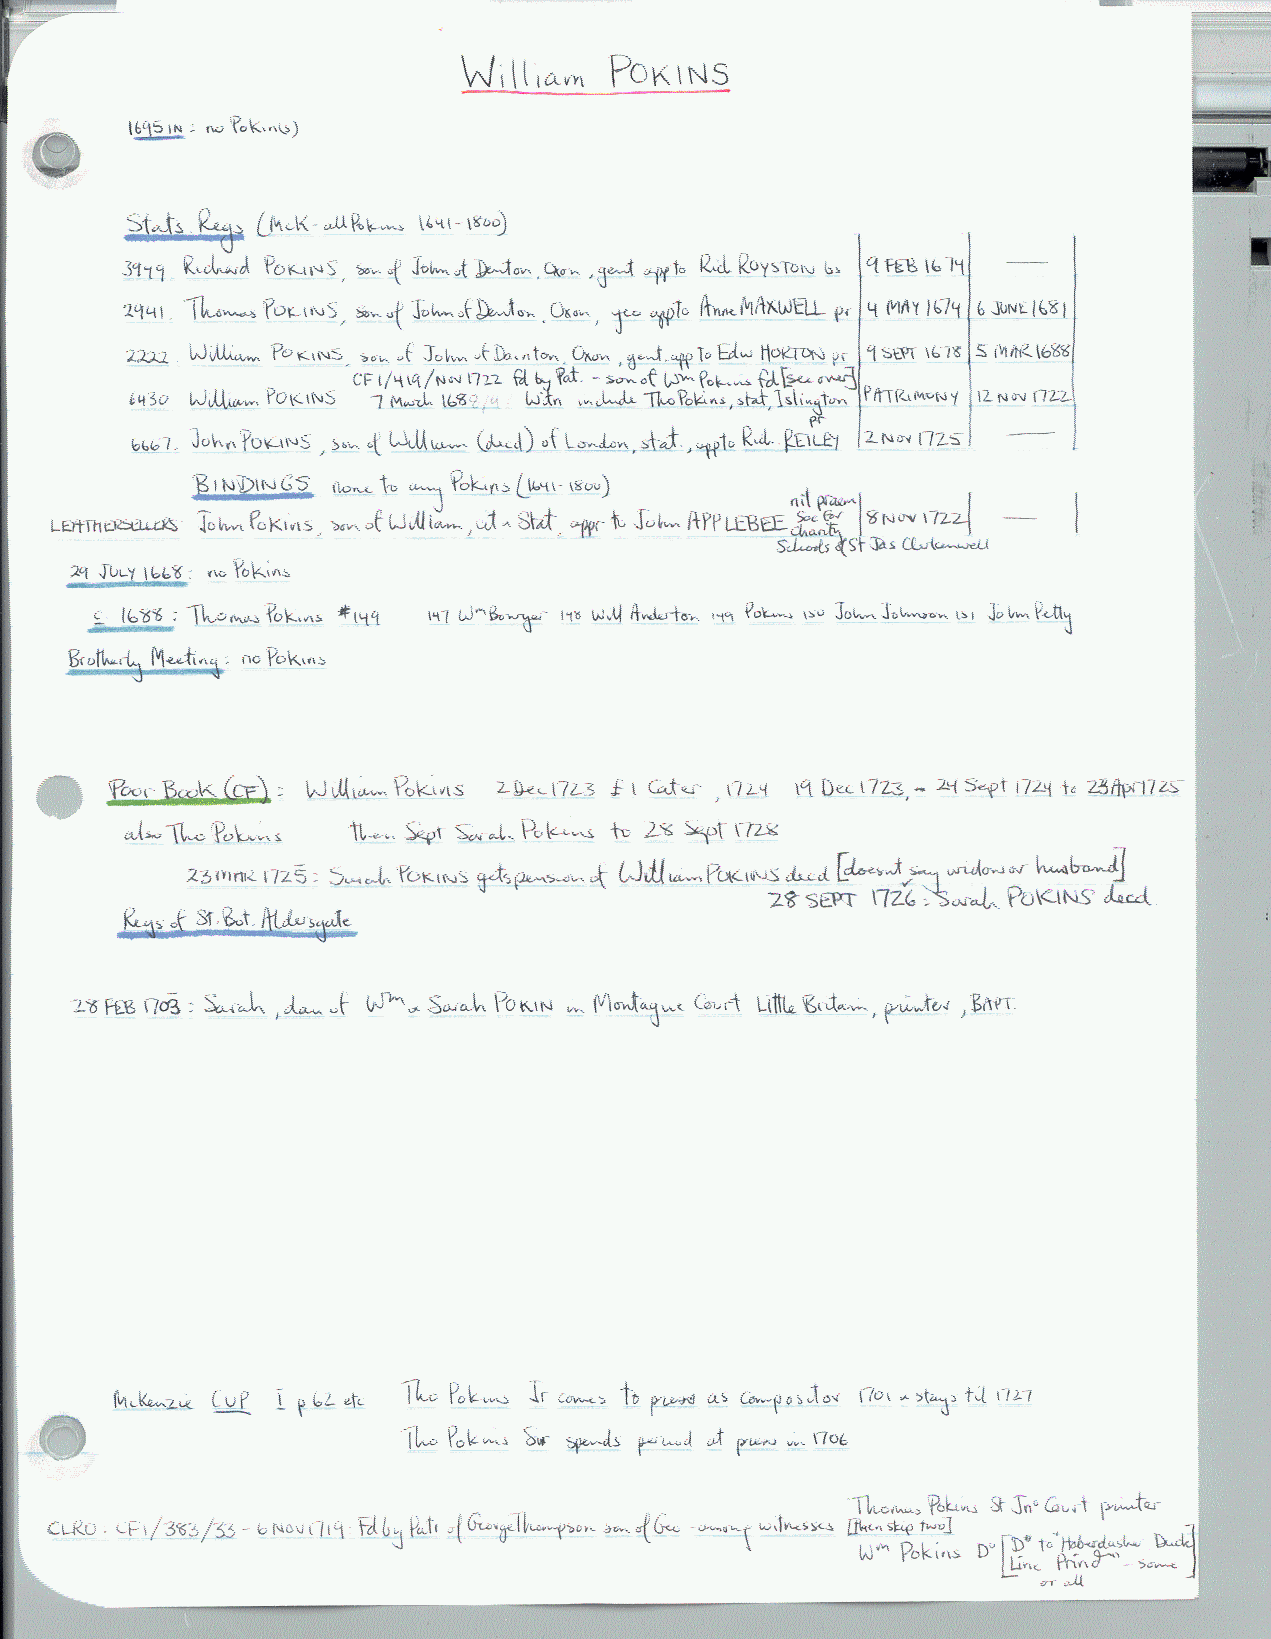 William POKINS
1695 IN : no Pokin(s)
Stats. Regs (McK - all Pokins 1641-1800)
3949 Richard POKINS, son of John of Denton, Oxon, gent app to Rid ROYSTON bs 9 FEB 1674 —
2941. Thomas POKINS, son of John of Denton, Oxon, yeo app to Anne MAXWELL pr 4 MAY 1674 6 JUNE 1681
2222. William POKINS, son of John of Dainton, Oxon, gent. app to Edw HORTON pr 9 SEPT 1678 5 MAR 1688
CF1/419/NOV 1722 fd by Pat. - son of Wm Pokins fd [see over]
6430 William POKINS 7 March 168 Witn include Tho Pokins, stat, Islington PATRIMONY 12 NOV 1722
6667. John POKINS, son of William (decd) of London, stat., app to Rid. REILEY pr 2 NOV 1725 —
BINDINGS none to any Pokins (1641-1800)
LEATHERSELLERS John Pokins, son of William, cit & Stat. appr to John APPLEBEE nil praem Soc for charity 8 NOV 1722 —
Schools of St Jas Clerkenwell
29 JULY 1668 : no Pokins
c 1688 : Thomas Pokins #149 147 Wm Bowyer 148 Will Anderton 149 Pokins 150 John Johnson 151 John Petty
Brotherly Meeting : no Pokins
Poor Book (CF) : William Pokins 2 Dec 1723 £1 Cater, 1724 19 Dec 1723, - 24 Sept 1724 to 23 Apr 1725
also Tho Pokins then Sept Sarah Pokins to 28 Sept 1728
23 MAR 1725 : Sarah POKINS gets pension of William POKINS decd [doesn't say widow or husband]
28 SEPT 1726 : Sarah POKINS decd.
Regs of St. Bot. Aldersgate
28 FEB 1703 : Sarah, dau of Wm & Sarah POKIN in Montague Court Little Britain, printer, BAPT.
McKenzie CUP I p 62 etc Tho Pokins Jr comes to press as compositor 1701 & stays til 1727
Tho Pokins Snr spends period at press in 1706
Thomas Pokins St Jno Court printer
CLRO. CF1/383/33 - 6 NOV 1719. Fd by Patr of George Thompson son of Geo - among witnesses [then skip two]
Wm Pokins Do [Do to "Haberdashe Duck
Line Print" - some
or all]